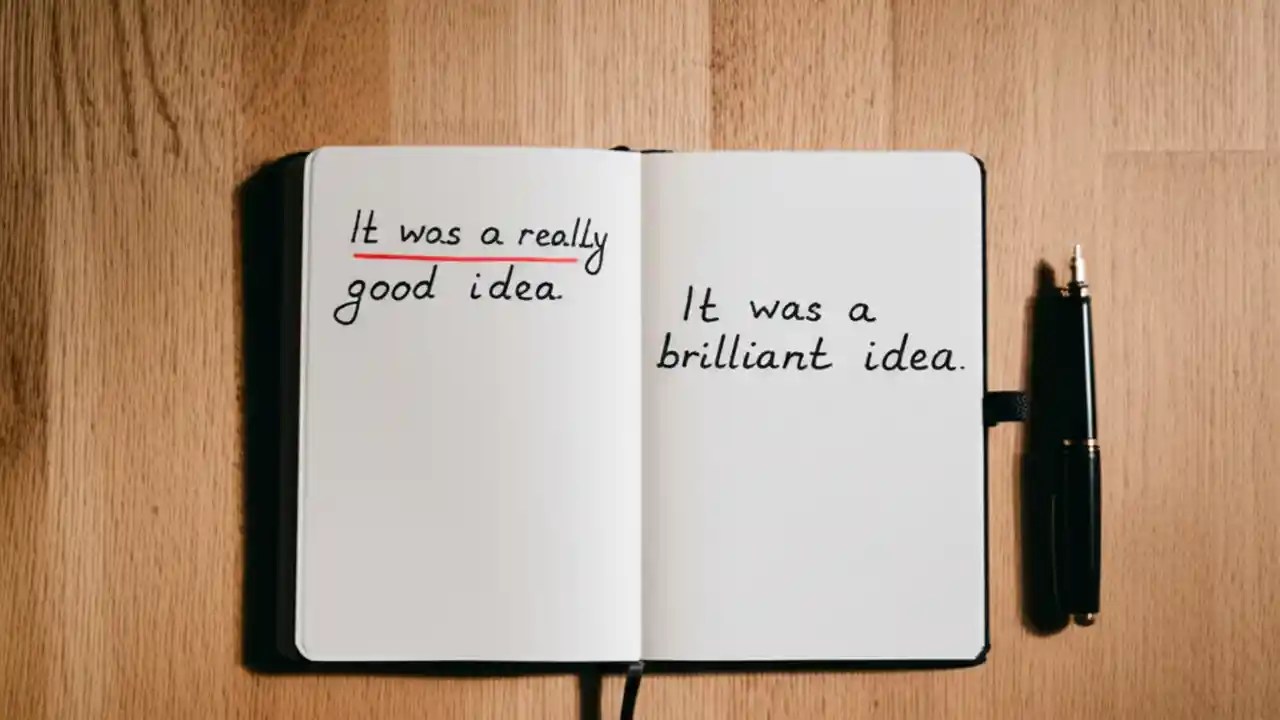 It was a really
good idea.
It was a
brilliant idea.